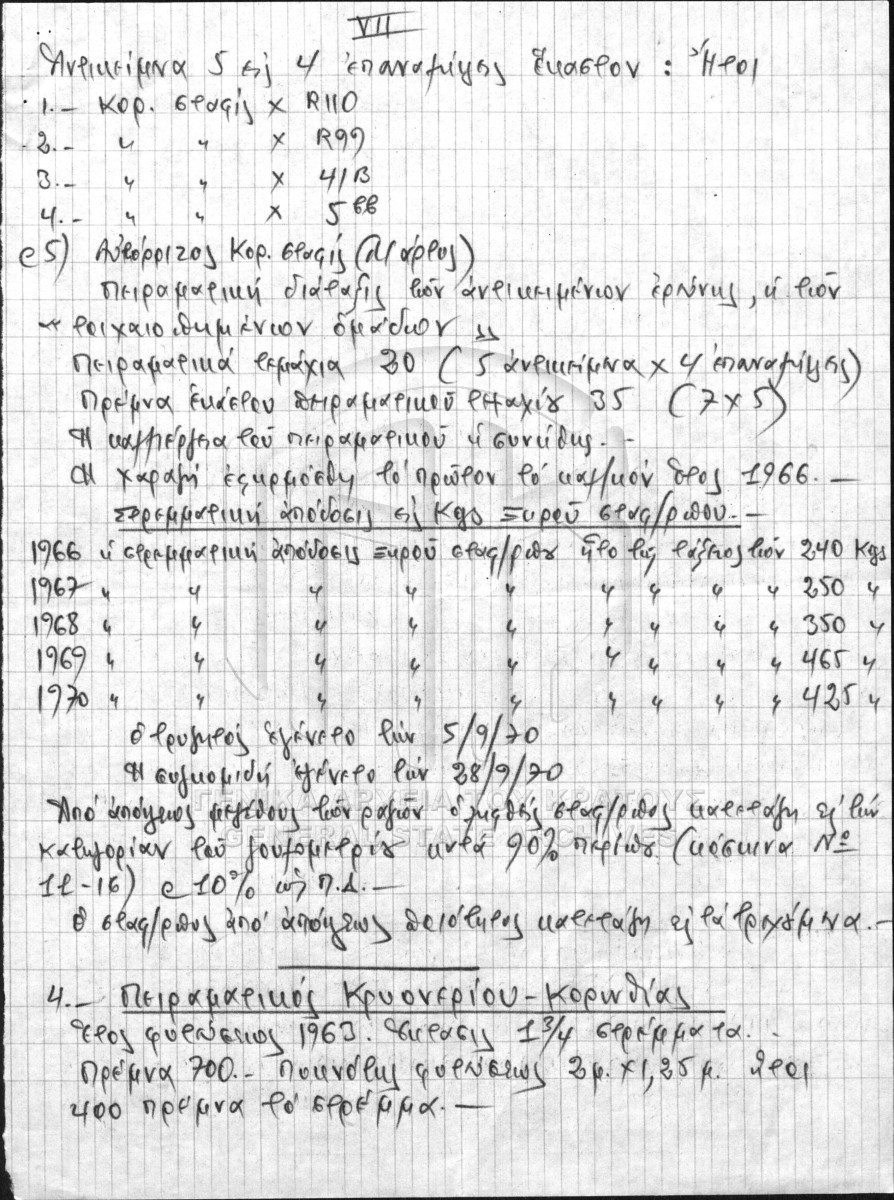 VII
Ἀντικείμενα 5 εἰς 4 ἐπαναλήψεις ἕκαστον : Ἤτοι
1.- Κορ. σταφὶς × R110
2.- " " × R99
3.- " " × 41B
4.- " " × 5ΒΒ
5) Αὐτόρριζος Κορ. σταφὶς (Μάρτυς)
Πειραματικὴ διάταξις τῶν ἀντικειμένων ἐρεύνης, ἡ τῶν
« τυχαιοποιημένων ὁμάδων »
Πειραματικὰ τεμάχια 20 (5 ἀντικείμενα × 4 ἐπαναλήψεις)
Πρέμνα ἑκάστου πειραματικοῦ τεμαχίου 35 (7×5)
Ἡ καλλιέργεια τοῦ πειραματικοῦ ἡ συνήθης. -
Ἡ χαραγὴ ἐφηρμόσθη τὸ πρῶτον τὸ καλ/κὸν ἔτος 1966. —
Στρεμματικὴ ἀπόδοσις εἰς Kgs ξηροῦ σταφ/ρπου. -
1966 ἡ στρεμματικὴ ἀπόδοσις ξηροῦ σταφ/ρπου ἦτο τῆς τάξεως τῶν 240 Kgs
1967 " " " " " " " " " 250 "
1968 " " " " " " " " " 350 "
1969 " " " " " " " " " 465 "
1970 " " " " " " " " " 425 "
Ὁ τρυγητὸς ἐγένετο τὴν 5/9/70
Ἡ συγκομιδὴ ἐγένετο τὴν 28/9/70
ΓΕΝΙΚΑ ΑΡΧΕΙΑ ΤΟΥ ΚΡΑΤΟΥΣ
Ἀπὸ ἀπόψεως μεγέθους τῶν ραγῶν ὁ ληφθεὶς σταφ/ρπος κατετάγη εἰς τὴν
GENERAL STATE ARCHIVES
κατηγορίαν τοῦ κατὰ 90% περίπου (κόσκινα Νο
11-16) 10% ὡς Π.Δ. —
Ὁ σταφ/ρπος ἀπὸ ἀπόψεως ποιότητος κατετάγη εἰς τὰ . -
4. - Πειραματικὸς Κρυονερίου - Κορινθίας
Ἔτος φυτεύσεως 1963. Ἔκτασις 1 3/4 στρέμματα.
Πρέμνα 700.- Πυκνότης φυτεύσεως 2μ. × 1,25 μ. ἤτοι
400 πρέμνα τὸ στρέμμα. —